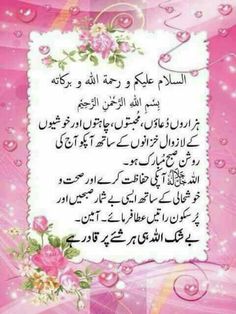 السلام علیکم و رحمة الله و برکاته
بِسْمِ اللهِ الرَّحْمٰنِ الرَّحِيْمِ
ہزاروں دُعاؤں، محبتوں، چاہتوں اور خوشیوں
کے لازوال خزانوں کے ساتھ آپکو آج کی
روشن صبح مُبارک ہو۔
اللہ ﷻ آپکی حفاظت کرے اور صحت و
خوشحالی کے ساتھ ایسی بے شمار صبحیں اور
پُر سکون راتیں عطا فرمائے۔ آمین۔
بے شک اللہ ہی ہر شئے پر قادر ہے